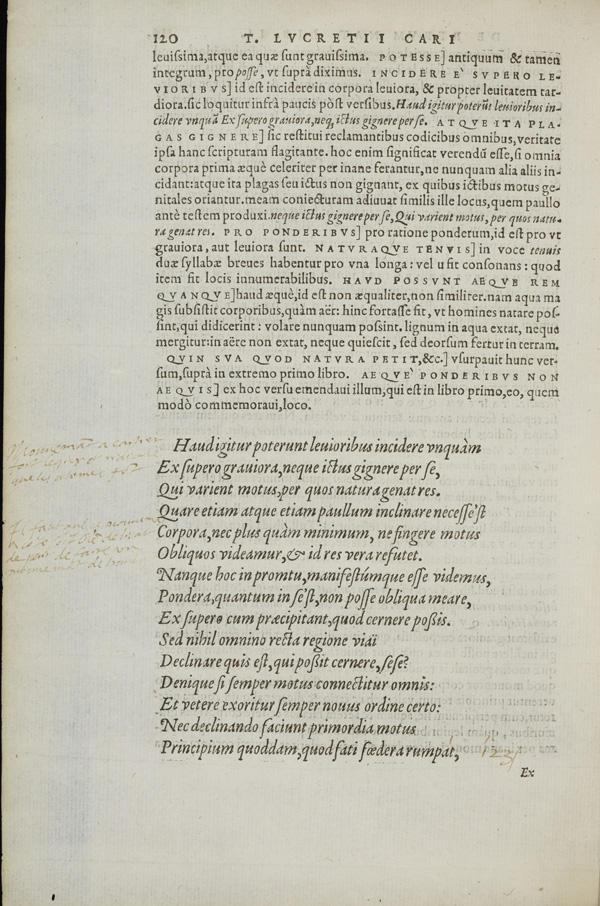 120 T. LVCRETII CARI
leuissima,atque ea quæ sunt grauissima. POTESSE] antiquum & tamen
integrum, pro posse, vt suprà diximus. INCIDERE E` SVPERO LE-
VIORIBVS] id est incidere in corpora leuiora, & propter leuitatem tar-
diora.sic loquitur infrà paucis pòst versibus. Haud igitur poterũt leuioribus in-
cidere vnquã Ex supero grauiora,neq, ictus gignere per se. ATQVE ITA PLA-
GAS GIGNERE] sic restitui reclamantibus codicibus omnibus, veritate
ipsa hanc scripturam flagitante. hoc enim significat verendũ esse, si omnia
corpora prima æquè celeriter per inane ferantur, ne nunquam alia aliis in-
cidant: atque ita plagas seu ictus non gignant, ex quibus ictibus motus ge-
nitales oriantur. meam coniecturam adiuuat similis ille locus, quem paullo
antè testem produxi. neque ictus gignere per se, Qui varient motus, per quos natu-
ra genat res. PRO PONDERIBVS] pro ratione ponderum, id est pro vt
grauiora, aut leuiora sunt. NATVRAQVE TENVIS] in voce tenuis
duæ syllabæ breues habentur pro vna longa: vel u fit consonans: quod
item fit locis innumerabilibus. HAVD POSSVNT AEQVE REM
QVANQVE] haud æquè, id est non æqualiter, non similiter. nam aqua ma
gis subsistit corporibus, quàm aër: hinc fortasse fit, vt homines natare pos-
sint, qui didicerint: volare nunquam possint. lignum in aqua extat, neque
mergitur: in aëre non extat, neque quiescit, sed deorsum fertur in terram.
QVIN SVA QVOD NATVRA PETIT,&c.] vsurpauit hunc ver-
sum, suprà in extremo primo libro. AEQVE` PONDERIBVS NON
AEQVIS] ex hoc versu emendaui illum, qui est in libro primo, eo, quem
modò commemoraui, loco.
Haud igitur poterunt leuioribus incidere vnquàm
Ex supero grauiora, neque ictus gignere per sè,
Qui varient motus, per quos natura genat res.
Quare etiam atque etiam paullum inclinare necesse'st
Corpora, nec plus quàm minimum, ne fingere motus
Obliquos videamur, & id res vera refutet.
Nanque hoc in promtu, manifestúmque esse videmus,
Pondera, quantum in se'st, non posse obliqua meare,
Ex supero cum præcipitant, quod cernere possis.
Sed nihil omnino recta regione viäi
Declinare quis est, qui possit cernere, sese?
Denique si semper motus connectitur omnis:
Et vetere exoritur semper nouus ordine certo:
Nec declinando faciunt primordia motus
Principium quoddam, quod fati fœdera rumpat,
Ex